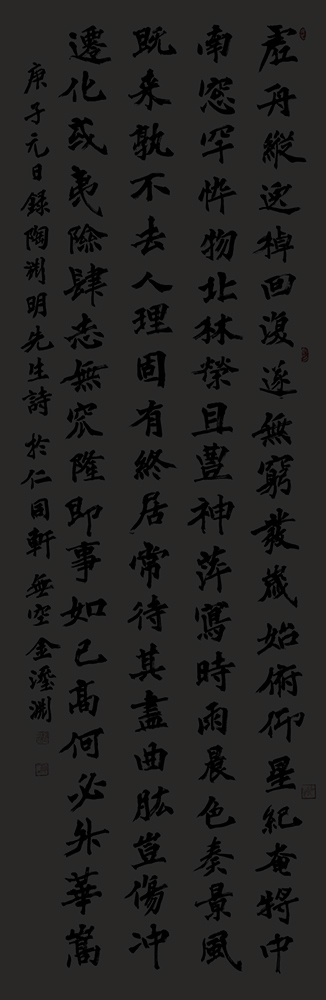 虛舟縱逸棹回復遂無窮發歲始俯仰星紀奄將中
南窓罕悴物北林榮且豊神萍寫時雨晨色奏景風
既来孰不去人理固有終居常待其盡曲肱豈傷冲
遷化或夷險肆志無窊隆即事如已高何必升華嵩
庚子元日錄陶渊明先生詩 於仁同軒 無空金瀅淵